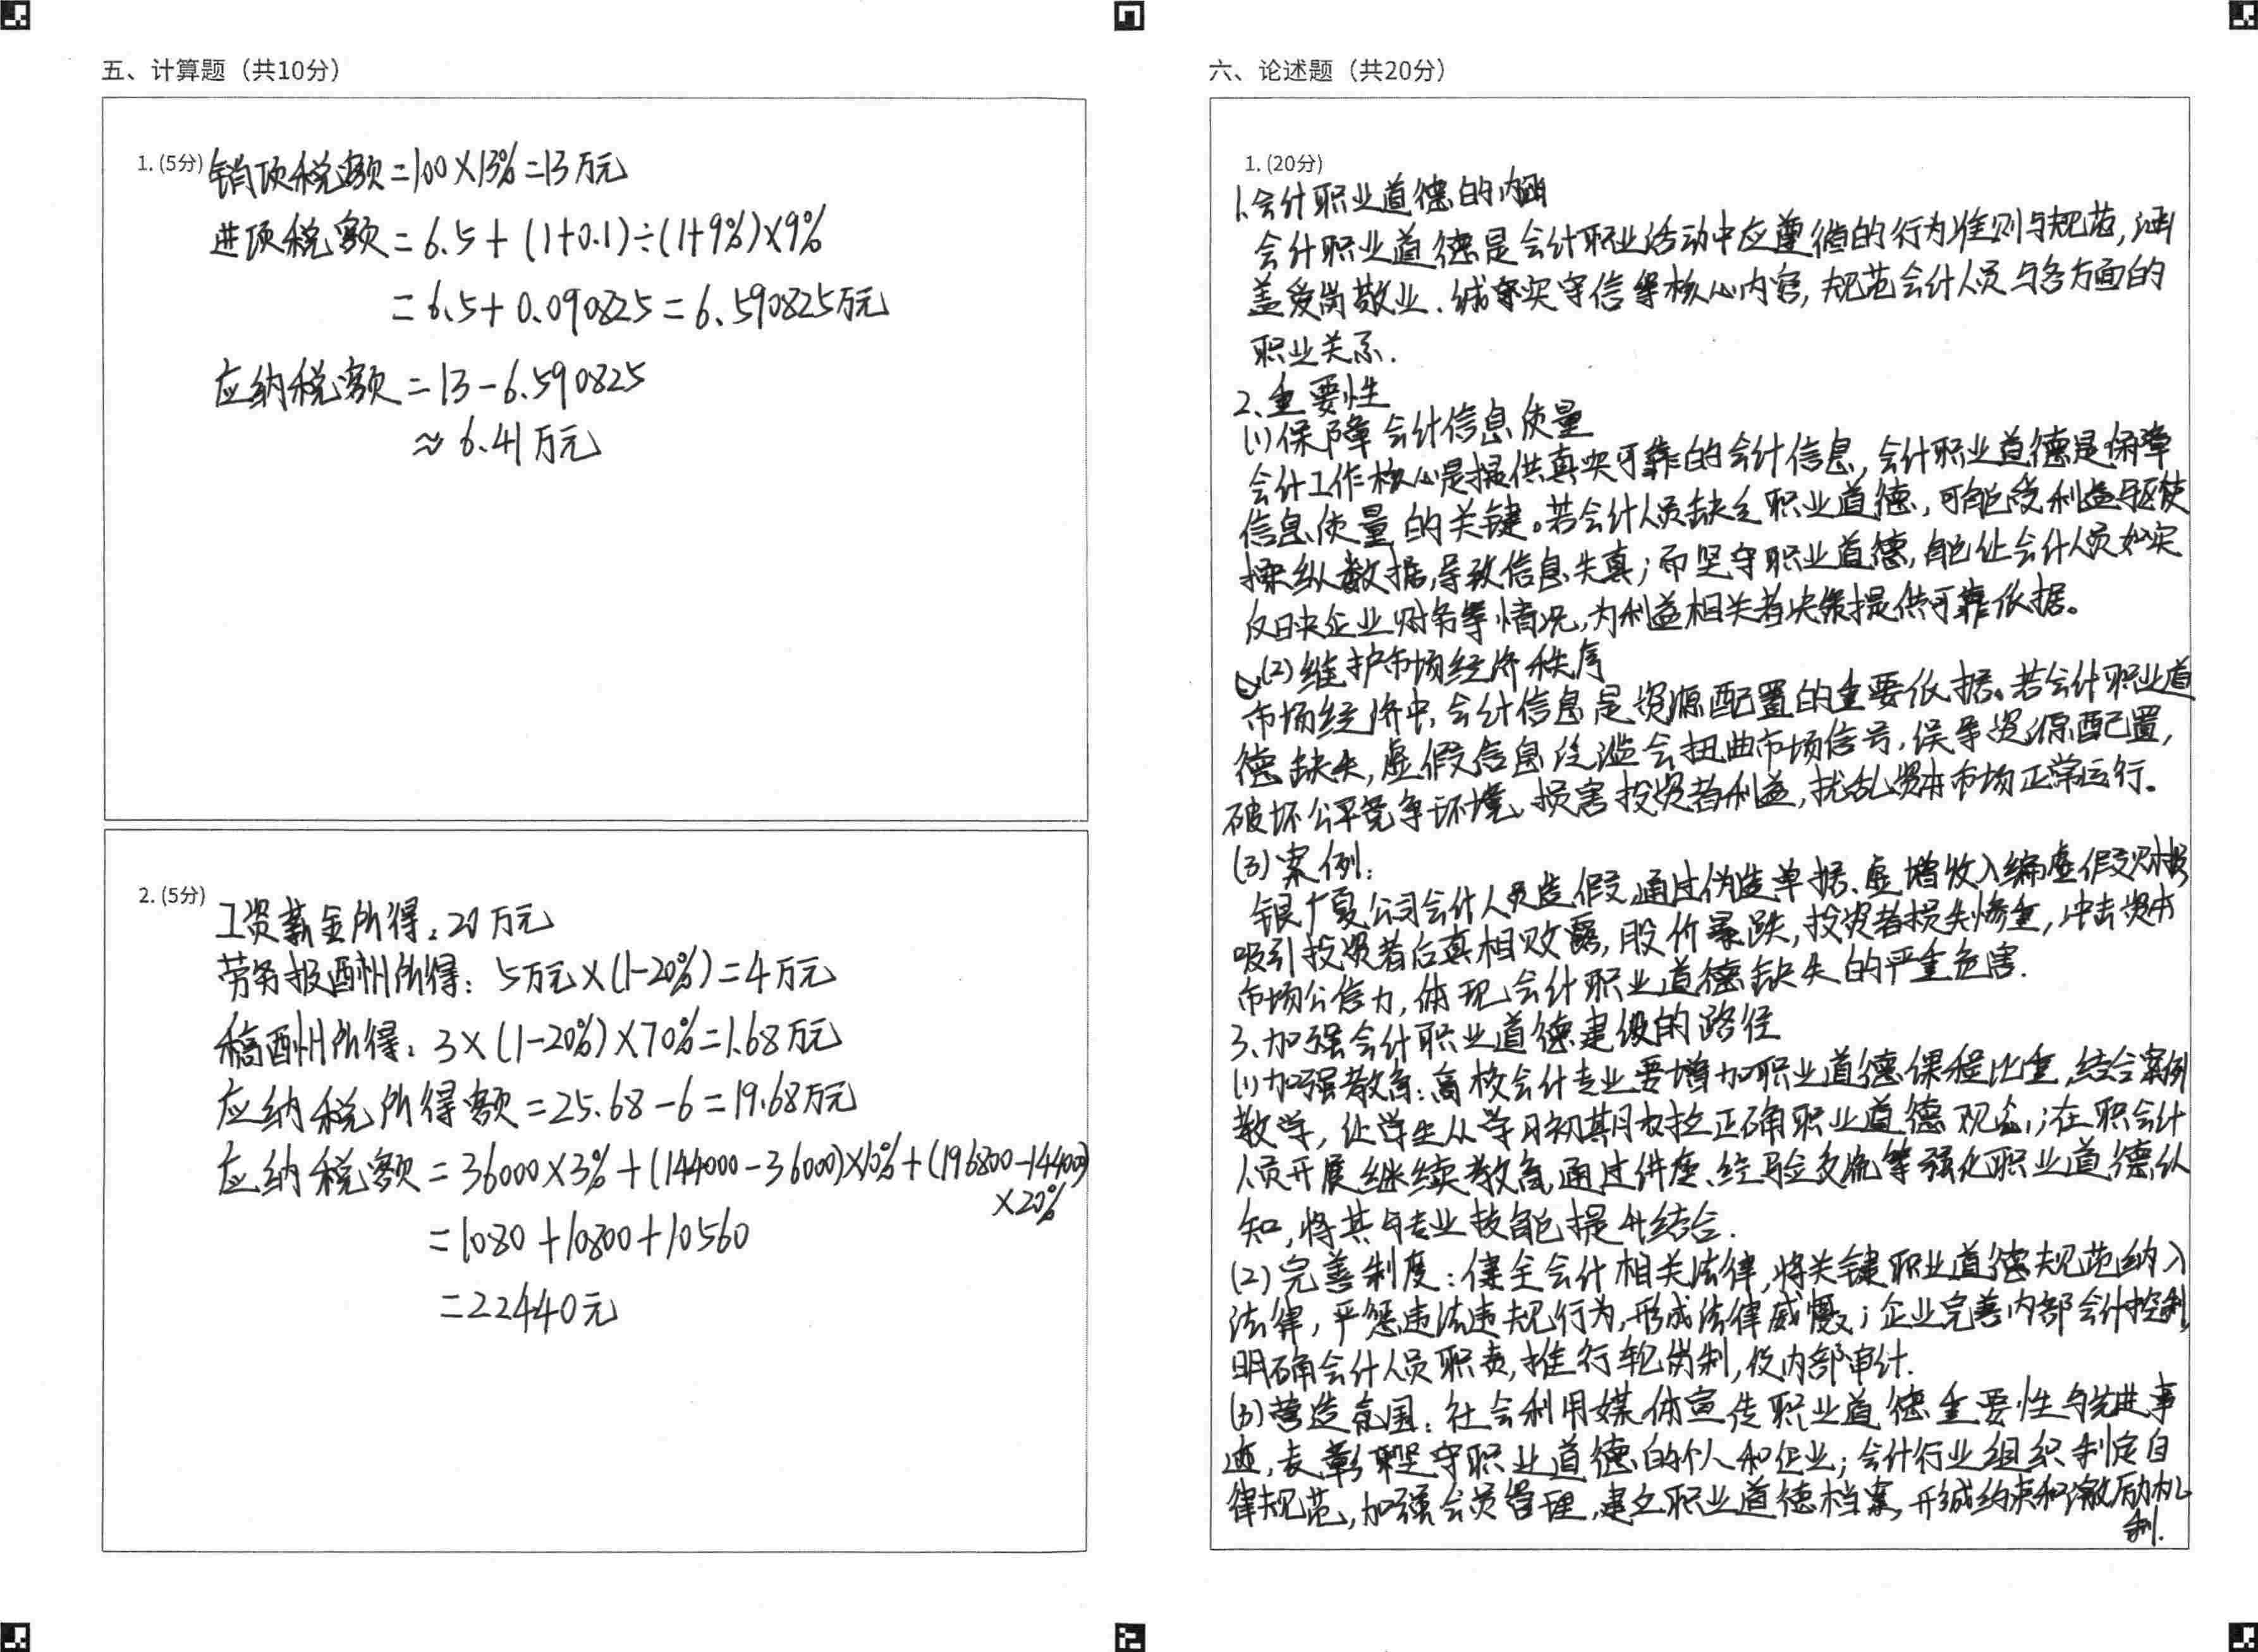 五、计算题（共10分）
1. (5分) 销项税额=100×13%=13万元
进项税额=6.5+(1+0.1)÷(1+9%)×9%
=6.5+0.090825=6.590825万元
应纳税额=13-6.590825
≈6.41万元
2. (5分)
工资薪金所得：20万元
劳务报酬所得：5万元×(1-20%)=4万元
稿酬所得：3×(1-20%)×70%=1.68万元
应纳税所得额=25.68-6=19.68万元
应纳税额=36000×3%+(144000-36000)×10%+(196800-144000)
×20%
=1080+10800+10560
=22440元
六、论述题（共20分）
1. (20分)
1、会计职业道德的内涵
会计职业道德是会计职业活动中应遵循的行为准则与规范,涵
盖爱岗敬业、诚实守信等核心内容,规范会计人员与各方面的
职业关系.
2、重要性
(1)保障会计信息质量
会计工作核心是提供真实可靠的会计信息,会计职业道德是保障
信息质量的关键。若会计人员缺乏职业道德,可能受利益驱使
操纵数据,导致信息失真;而坚守职业道德,能让会计人员如实
反映企业财务等情况,为利益相关者决策提供可靠依据。
(2)维护市场经济秩序
市场经济中,会计信息是资源配置的重要依据。若会计职业道
德缺失,虚假信息泛滥会扭曲市场信号,误导资源配置,
破坏公平竞争环境、损害投资者利益,扰乱资本市场正常运行。
(3)案例:
银广夏公司会计人员造假,通过伪造单据、虚增收入编虚假财报
吸引投资者后真相败露,股价暴跌,投资者损失惨重,冲击资本
市场公信力,体现会计职业道德缺失的严重危害.
3、加强会计职业道德建设的路径
(1)加强教育:高校会计专业要增加职业道德课程比重,结合案例
教学,让学生从学习初期树立正确职业道德观念;在职会计
人员开展继续教育,通过讲座、经验交流等强化职业道德认
知,将其与专业技能提升结合.
(2)完善制度:健全会计相关法律,将关键职业道德规范纳入
法律,严惩违法违规行为,形成法律威慑;企业完善内部会计控制,
明确会计人员职责,推行轮岗制,设内部审计.
(3)营造氛围:社会利用媒体宣传职业道德重要性与先进事
迹,表彰坚守职业道德的个人和企业;会计行业组织制定自
律规范,加强会员管理,建立职业道德档案,形成约束和激励机
制.